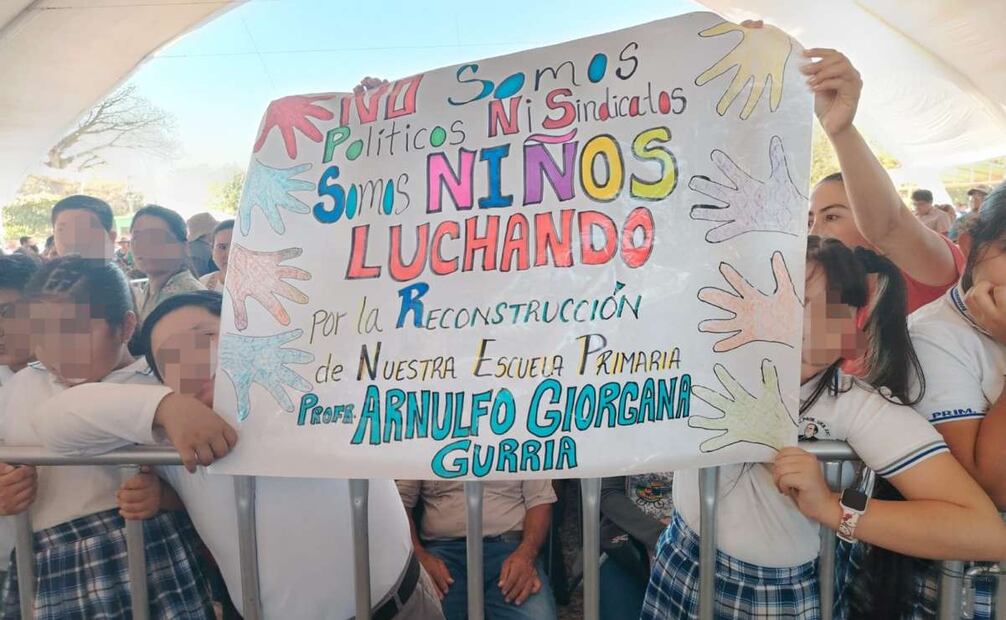 NO SOMOS
POLÍTICOS NI SINDICATOS
SOMOS NIÑOS
LUCHANDO
por la RECONSTRUCCIÓN
de NUESTRA ESCUELA PRIMARIA
PROFR. ARNULFO GIORGANA
GURRIA
PRIM.